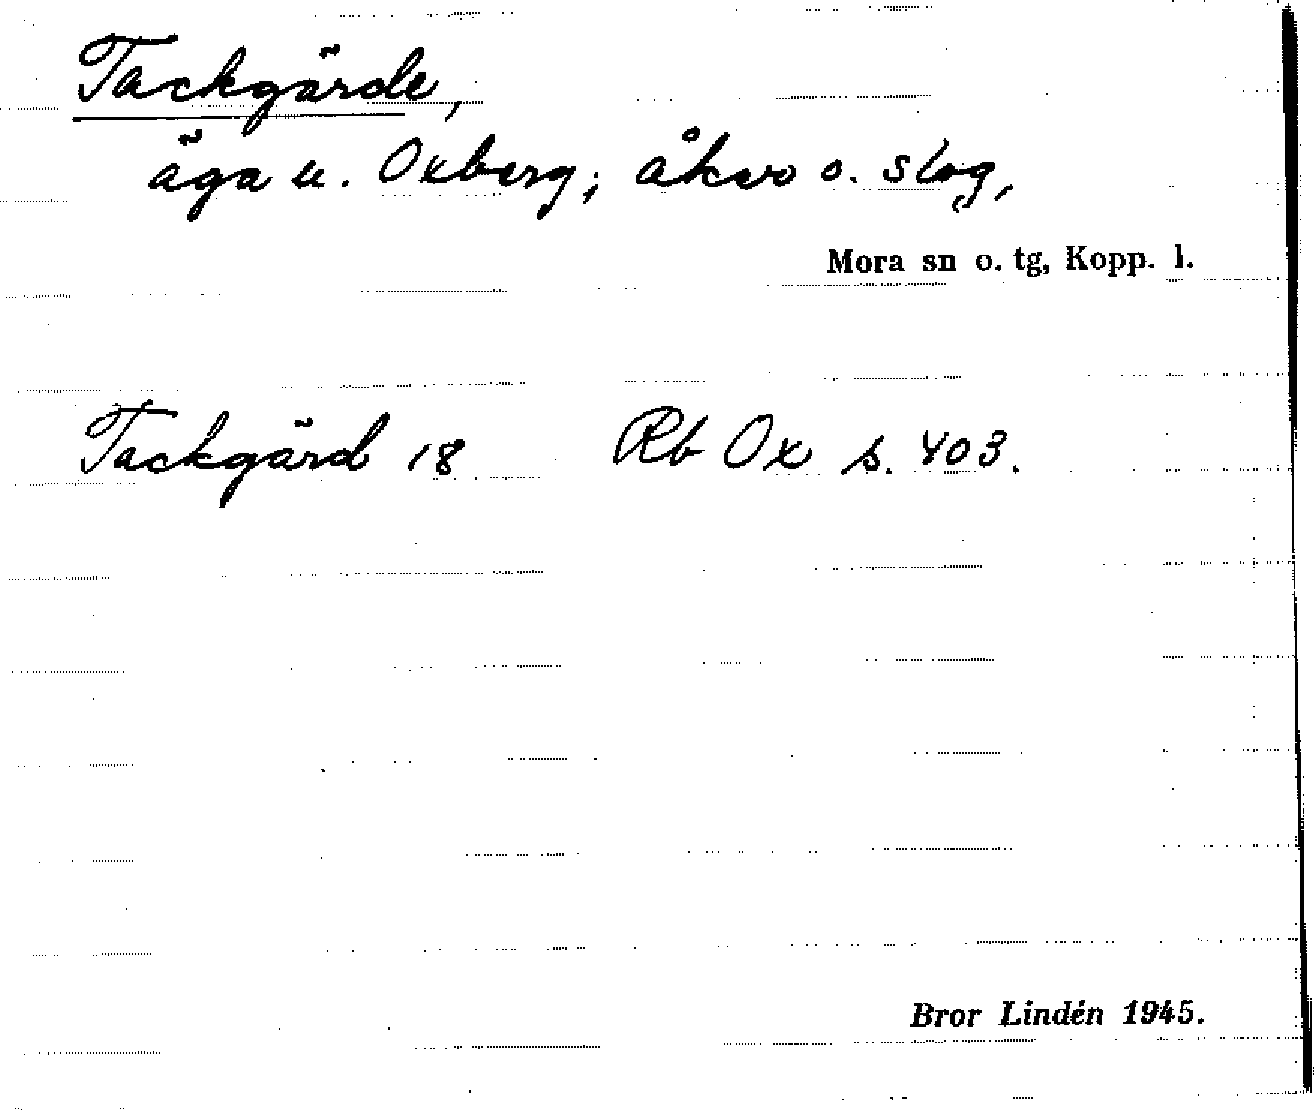 Tackgärde,
äga u. Oxberg; åker o. slog,
Mora sn o. tg, Kopp. l.
Tackgärd 18 Rb Ox s. 403.
Bror Lindén 1945.